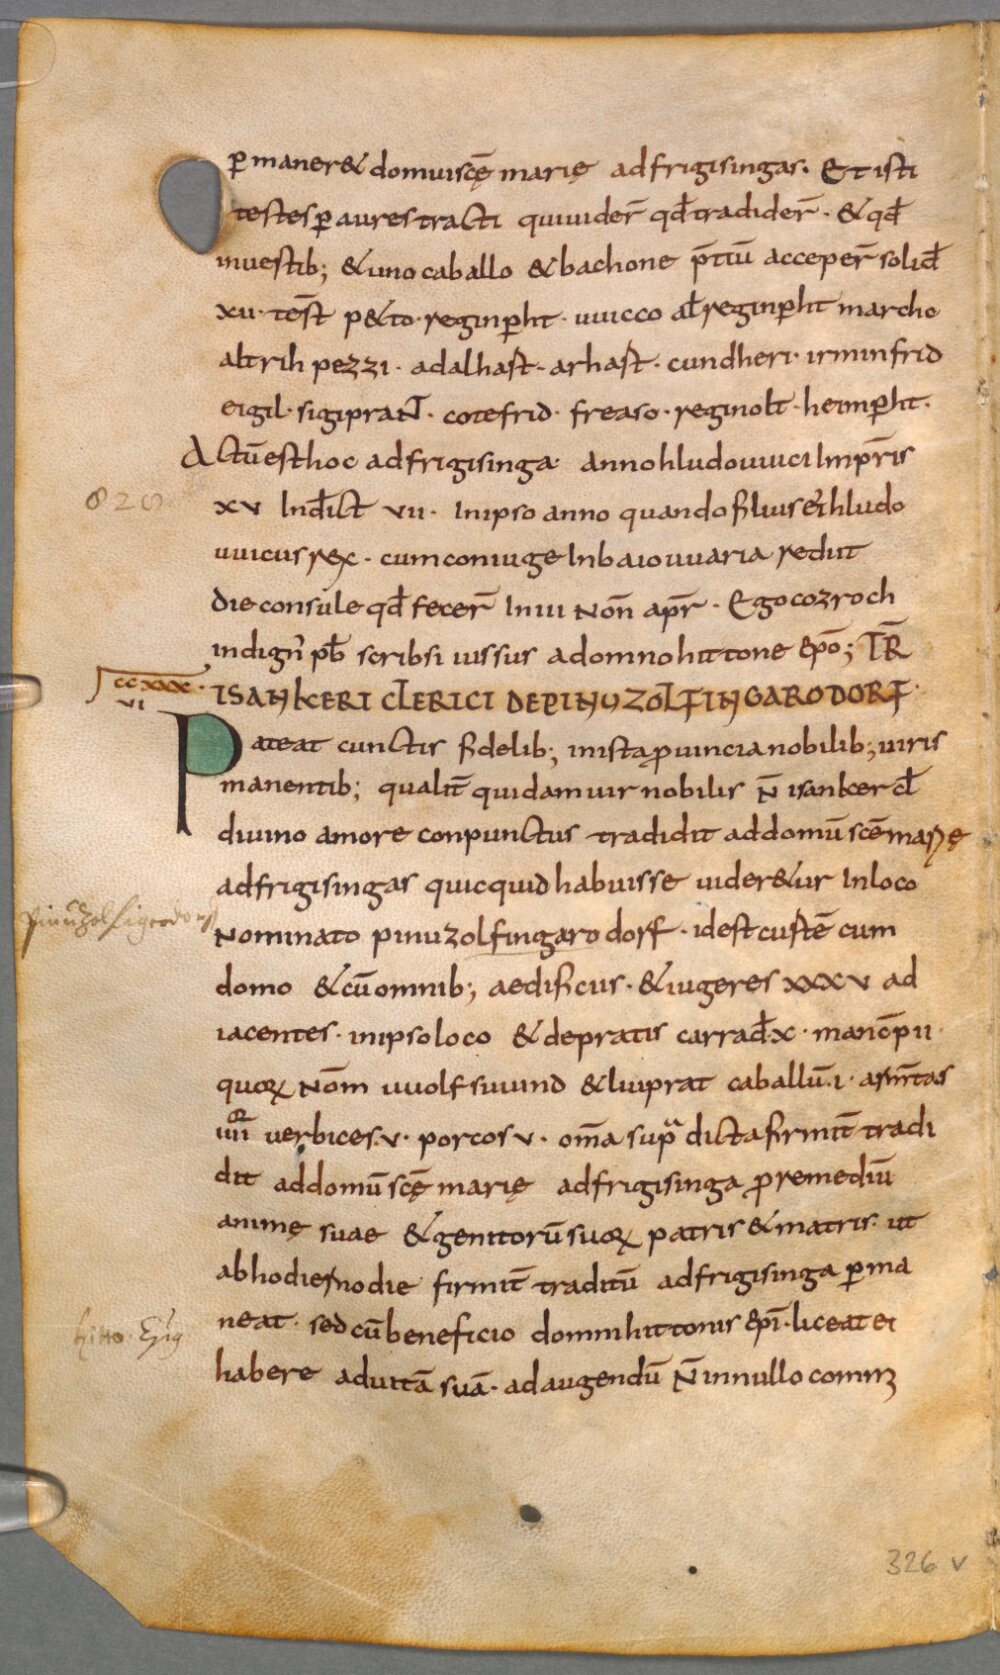 ꝑmaner& domui scē marię ad frigisingas. Et isti
testes ꝑ aures tracti qui uider̄ qđ tradider̄. & qđ
inuestib; & uno caballo & bachone p̄tiū acceper̄ soliđ
xii. test̄ p&to. reginꝑht. uuicco al̄ reginꝑht marcho
altrih pezzi. adalhast. arhast. cundheri. irminfrid
eigil. sigipraN̄T. cotefrid. freaso. reginolt. heimꝑht.
Actū est hoc ad frigisinga. anno hludouuici Imp̄ris
820
xv Inđict vii. In ipso anno quando filius ei hludo
uuicus rex. cum coniuge In baiouuaria rediit
die consule qđ fecer̄ In uii Noñ apr̄. Ego cozroch
indigñ pb̄ scribsi iussus a domno hittone ep̄o; TR̄
ccxxx
vi
ISANKERI CLERICI DE PINUZOLFINGARODORF.
Pateat cunctis fidelib; in ista ꝓuincia nobilib; uiris
manentib; qualit̄ quidam uir nobilis N̄ isanker cl̄
diuino amore conpunctus tradidit ad domū scē marię
ad frigisingas quicquid habuisse uider&ur In loco
pinuzolfigrdorf
Nominato pinuzolfingarodorf. id est custē cum
domo & cū omnib; aedificiis. & iugeres xxxv ad
iacentes. in ipso loco & de pratis carrađ.x. manc̄p ii.
quoꝝ Nom̄ uuolfsuuind & liuprat caballū.i. arm̄tas
iiii or uerbices.v. porcos v. om̄a sup̄a dicta firmit̄ tradi
dit ad domū scę̄ marię ad frigisinga ꝓ remediū
animę suae & genitorū suoꝝ patris & matris. ut
ab hodierno die firmit̄ traditū ad frigisinga ꝑma
hitto. Ep̄s
neat. sed cū beneficio domni hittonis ep̄i. liceat ei
habere ad uitā suā. ad augendū N̄ in nullo comm
326 v